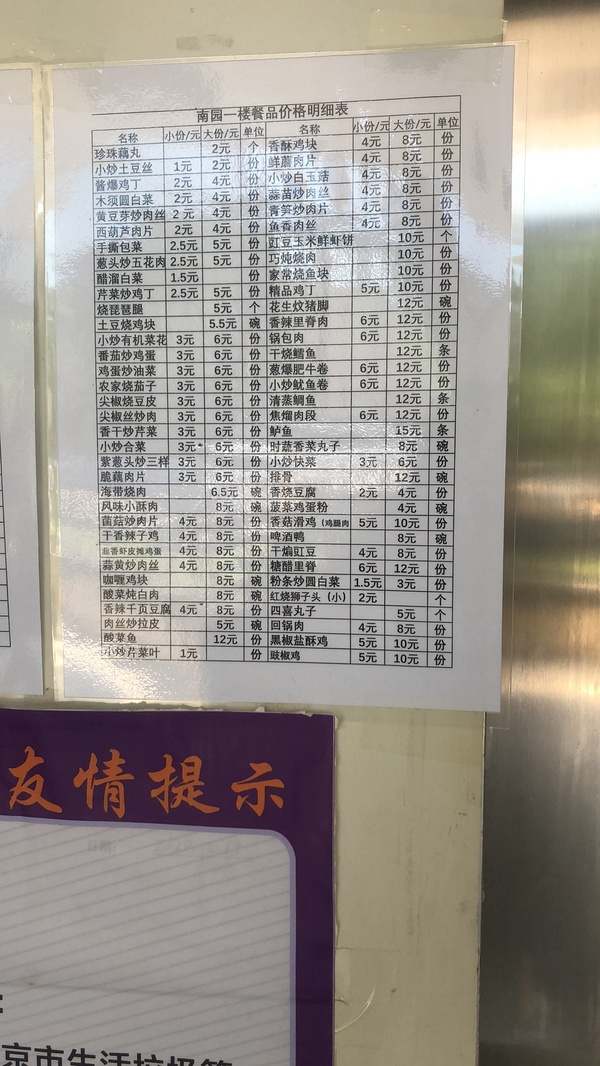 南园一楼餐品价格明细表
名称 小份/元 大份/元 单位 名称 小份/元 大份/元 单位
珍珠藕丸 2元 个 香酥鸡块 4元 8元 份
小炒土豆丝 1元 2元 份 鲜蘑肉片 4元 8元 份
酱爆鸡丁 2元 4元 份 小炒白玉菇 4元 8元 份
木须圆白菜 2元 4元 份 蒜苗炒肉丝 4元 8元 份
黄豆芽炒肉丝 2元 4元 份 青笋炒肉片 4元 8元 份
西葫芦肉片 2元 4元 份 鱼香肉丝 4元 8元 份
手撕包菜 2.5元 5元 份 豇豆玉米鲜虾饼 10元 个
葱头炒五花肉 2.5元 5元 份 巧炖烧肉 10元 份
醋溜白菜 1.5元 份 家常烧鱼块 10元 份
芹菜炒鸡丁 2.5元 5元 份 精品鸡丁 5元 10元 份
烧琵琶腿 5元 个 花生炆猪脚 12元 碗
土豆烧鸡块 5.5元 碗 香辣里脊肉 6元 12元 份
小炒有机菜花 3元 6元 份 锅包肉 6元 12元 份
番茄炒鸡蛋 3元 6元 份 干烧鳕鱼 12元 条
鸡蛋炒油菜 3元 6元 份 葱爆肥牛卷 6元 12元 份
农家烧茄子 3元 6元 份 小炒鱿鱼卷 6元 12元 份
尖椒烧豆皮 3元 6元 份 清蒸鲷鱼 12元 条
尖椒丝炒肉 3元 6元 份 焦熘肉段 6元 12元 份
香干炒芹菜 3元 6元 份 鲈鱼 15元 条
小炒合菜 3元 6元 份 时蔬香菜丸子 8元 碗
紫葱头炒三样 3元 6元 份 小炒快菜 3元 6元 份
脆藕肉片 3元 6元 份 排骨 12元 碗
海带烧肉 6.5元 碗 香烧豆腐 2元 4元 份
风味小酥肉 8元 碗 菠菜鸡蛋粉 4元 碗
菌菇炒肉片 4元 8元 份 香菇滑鸡（鸡腿肉 5元 10元 份
干香辣子鸡 4元 8元 份 啤酒鸭 8元 碗
韭香虾皮摊鸡蛋 4元 8元 份 干煸豇豆 4元 8元 份
蒜黄炒肉丝 4元 8元 份 糖醋里脊 6元 12元 份
咖喱鸡块 8元 碗 粉条炒圆白菜 1.5元 3元 份
酸菜炖白肉 8元 碗 红烧狮子头（小） 2元 个
香辣千页豆腐 4元 8元 份 四喜丸子 5元 个
肉丝炒拉皮 5元 碗 回锅肉 4元 8元 份
酸菜鱼 12元 份 黑椒盐酥鸡 5元 10元 份
小炒芹菜叶 1元 份 豉椒鸡 5元 10元 份
友情提示
京市生活垃圾管